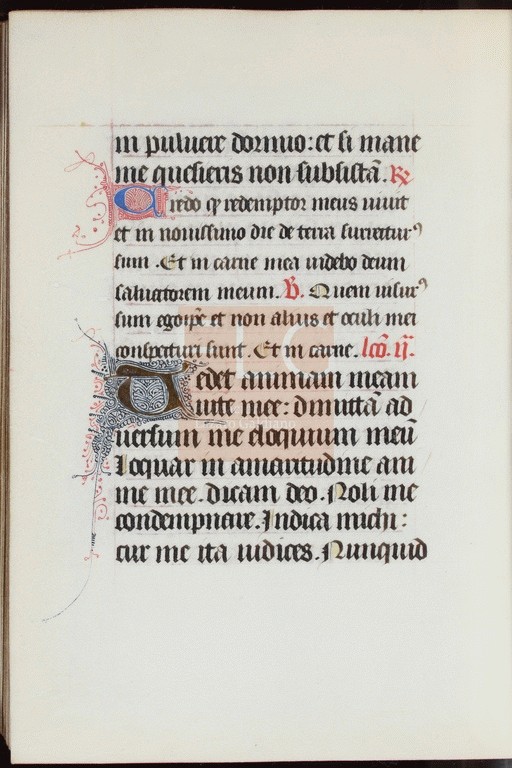 in puluere dormio: et si mane
me quesieris non subsistā. R
Credo qp redemptor meus uiuit
et in nouissimo die de terra surrecturꝰ
sum. Et in carne mea uidebo deum
saluatorem meum. V. Quem uisurꝰ
sum ego ip̄e et non alius et oculi mei
conspecturi sunt. Et in carne. lcō. ij.
Tedet animam meam
uite mee: dimittā ad
uersum me eloquium meū
loquar in amaritudine ani
me mee. dicam deo. Noli me
condempnare. Indica michi:
cur me ita iudices. Nunquid